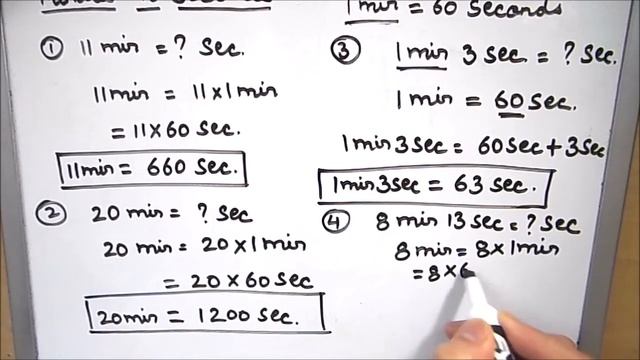 1 min = 60 Seconds
① 11 min = ? Sec.
11min = 11×1min
= 11×60 Sec.
11min = 660 Sec.
② 20 min = ? Sec
20 min = 20×1min
= 20×60 Sec
20min = 1200 Sec.
③ 1min 3 Sec. = ? Sec.
1min = 60 Sec.
1min 3Sec = 60Sec + 3Sec
1min 3sec = 63 Sec.
④ 8 min 13 Sec = ? Sec
8 min = 8×1min
= 8×6